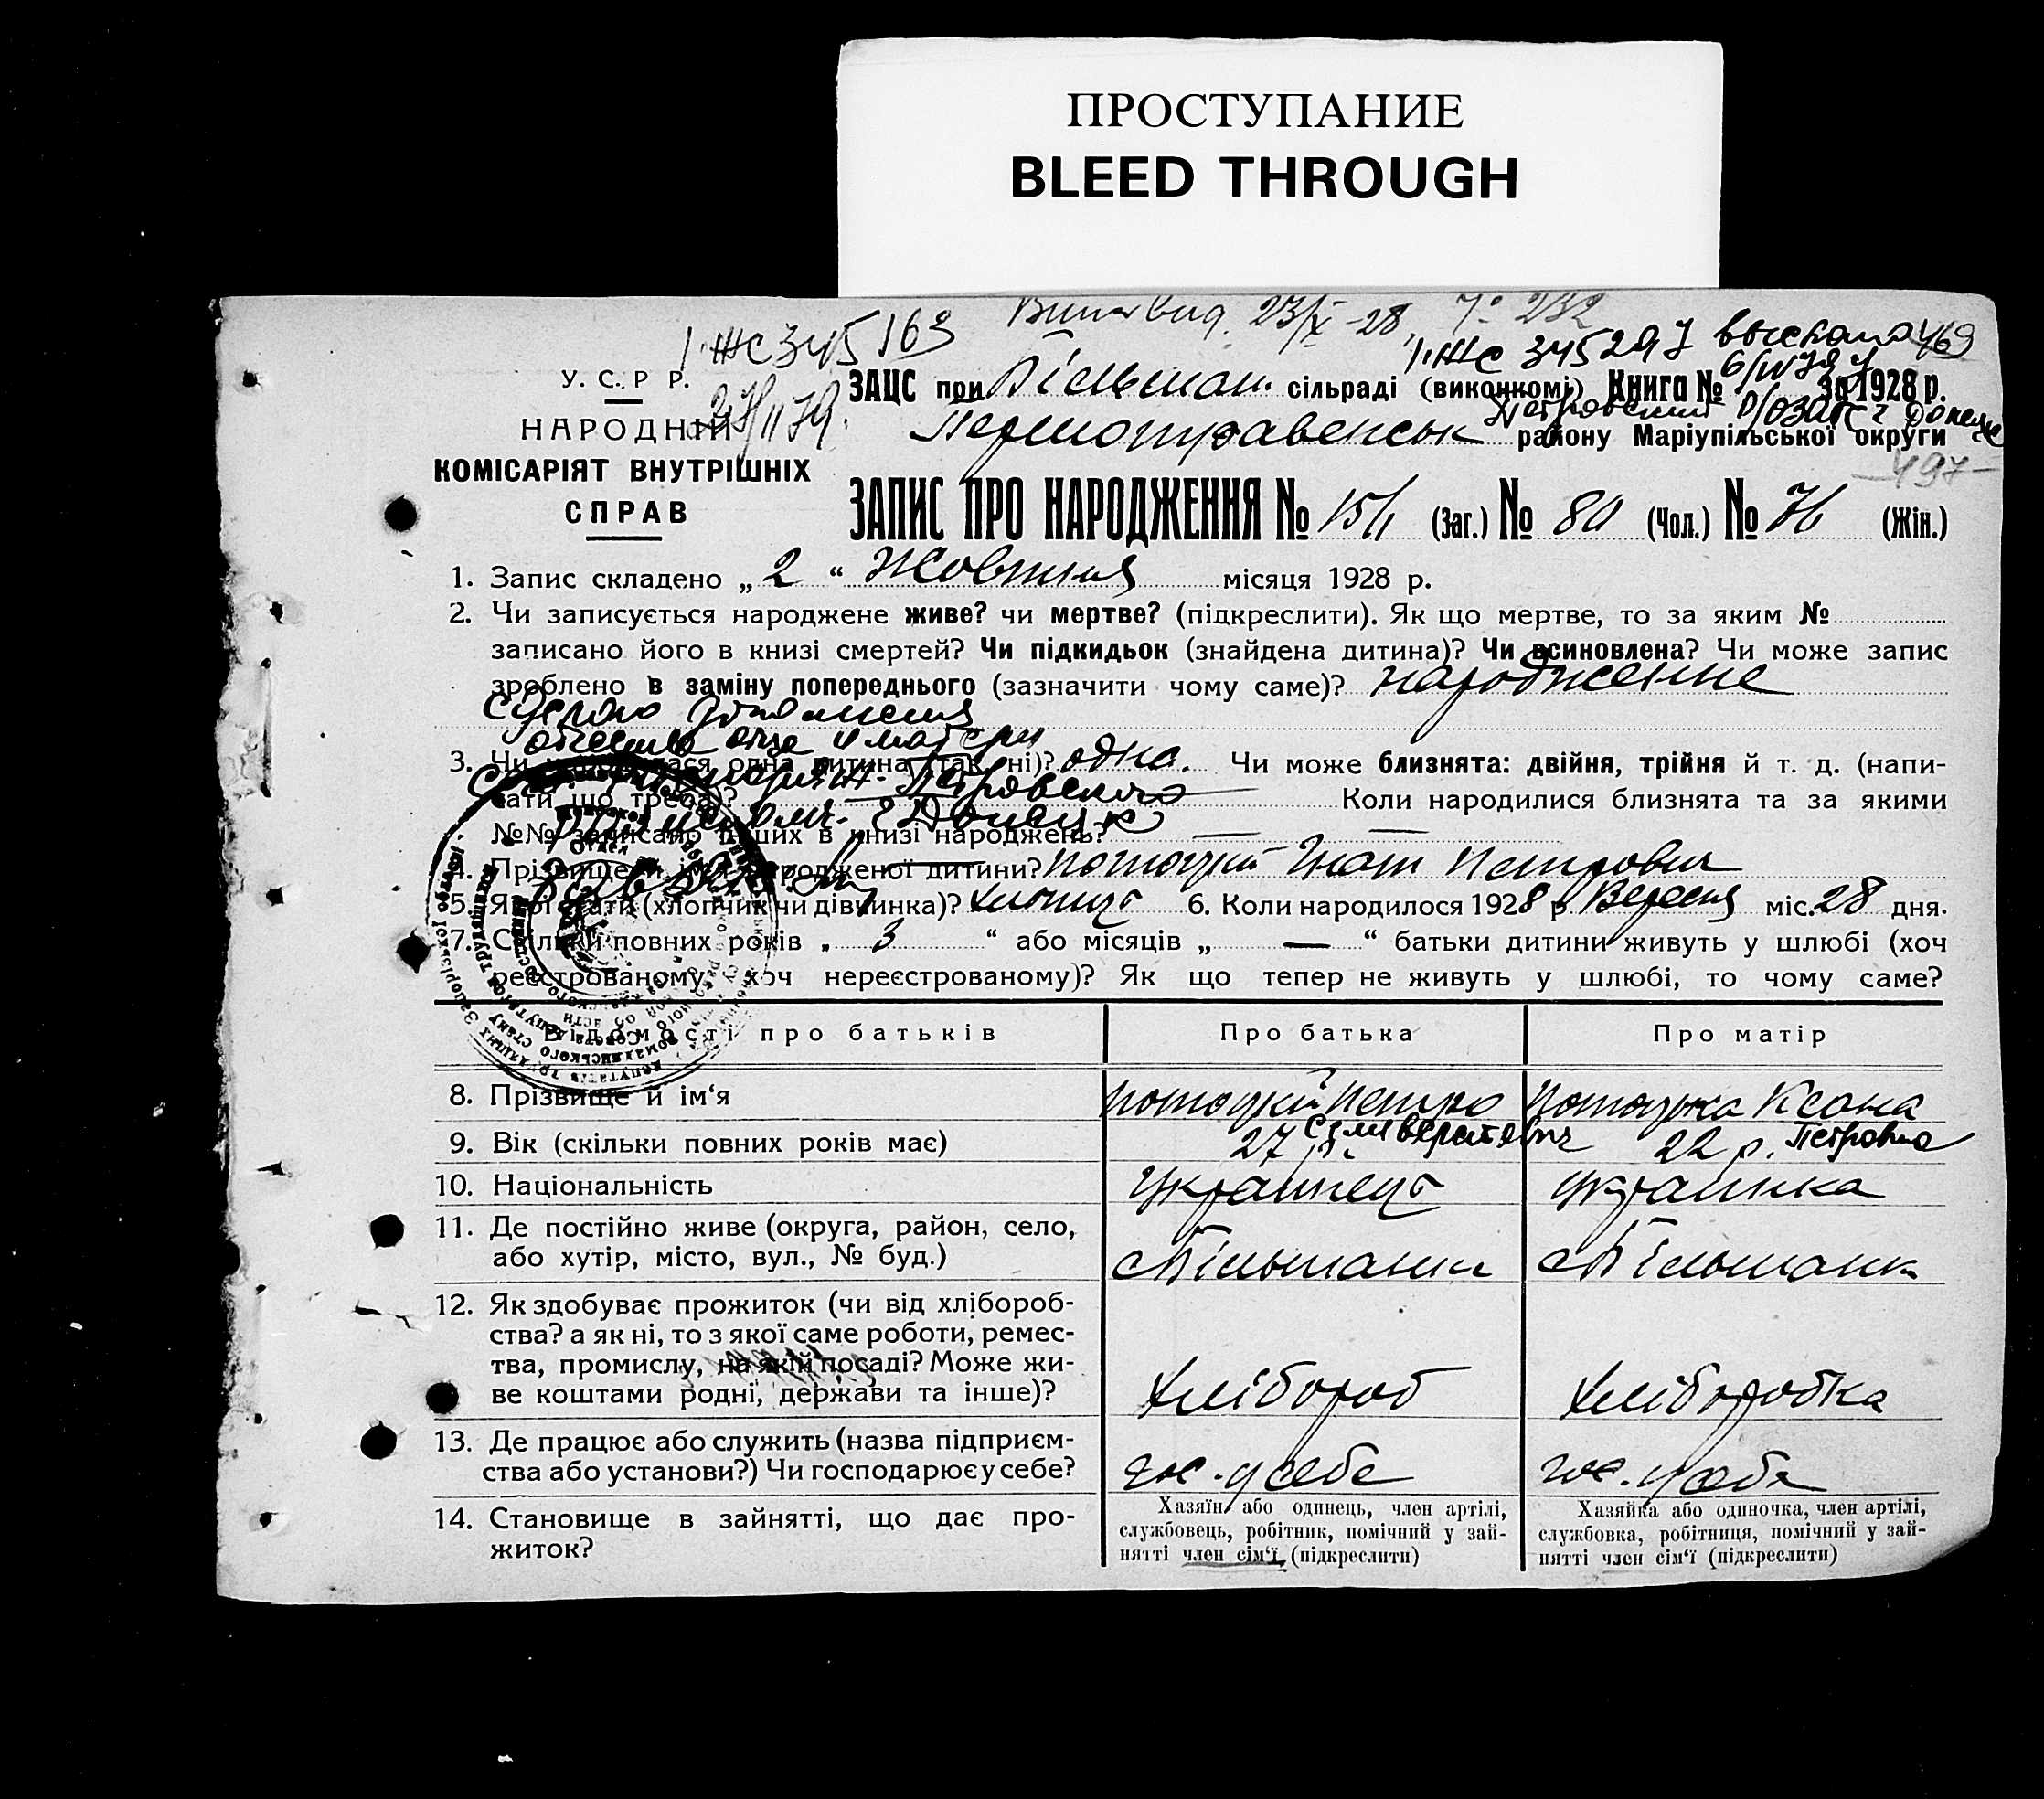 ПРОСТУПАНИЕ
BLEED THROUGH
23/X-28, № 232
I ЖС 345163
I ЖС 345297 выслано 469
6/IV 79
27/II 79.
У. С. Р. Р.
НАРОДНІЙ
КОМІСАРІЯТ ВНУТРІШНІХ
СПРАВ
ЗАЦС при Більман. сільраді (виконкомі) Книга № за 1928 р.
Петровский р/озагс г Донецк
Першотравенськ району Маріупільської округи
-497-
ЗАПИС ПРО НАРОДЖЕННЯ № (Заг.) № 80 (Чол.) № 76 (Жін.)
1. Запис складено „ 2 “ Жовтня місяця 1928 р.
2. Чи записується народжене живе? чи мертве? (підкреслити). Як що мертве, то за яким №
записано його в книзі смертей? Чи підкидьок (знайдена дитина)? Чи всиновлена? Чи може запис
зроблено в заміну попереднього (зазначити чому саме)? народження
отца и матери
3. Чи народилася одна дитина (так, ні)? одна. Чи може близнята: двійня, трійня й т. д. (напи-
сати що треба)? — Коли народилися близнята та за якими
Петровского
№№ записано інших в книзі народжень? — —
г Донецк
4. Прізвище й ім'я народженої дитини? Потоцкий Гнат Петрович
5. Якої стати (хлопчик чи дівчинка)? хлопець 6. Коли народилося 1928 р Вересня міс. 28 дня.
7. Скільки повних років „ 3 “ або місяців „ — “ батьки дитини живуть у шлюбі (хоч
реєстрованому, хоч нереєстрованому)? Як що тепер не живуть у шлюбі, то чому саме?
Відомості про батьків Про батька Про матір
8. Прізвище й ім‘я Потоцкий Петро Потоцька Ксона
Селиверстович Петровна
9. Вік (скільки повних років має) 27 р. 22 р.
10. Національність Українець Українка
11. Де постійно живе (округа, район, село,
або хутір, місто, вул., № буд.) с Більманка с Більманка
12. Як здобуває прожиток (чи від хлібороб-
ства? а як ні, то з якої саме роботи, ремес-
тва, промислу, на якій посаді? Може жи-
ве коштами родні, держави та інше)? Хлібороб Хліборобка
13. Де працює або служить (назва підприєм-
ства або установи?) Чи господарює у себе? гос. у себе гос. у себе
14. Становище в зайнятті, що дає про-
житок?
Хазяїн або одинець, член артілі,
службовець, робітник, помічний у зай-
нятті член сім‘ї (підкреслити)
Хазяйка або одиночка, член артілі,
службовка, робітниця, помічний у зай-
нятті член сім‘ї (підкреслити)